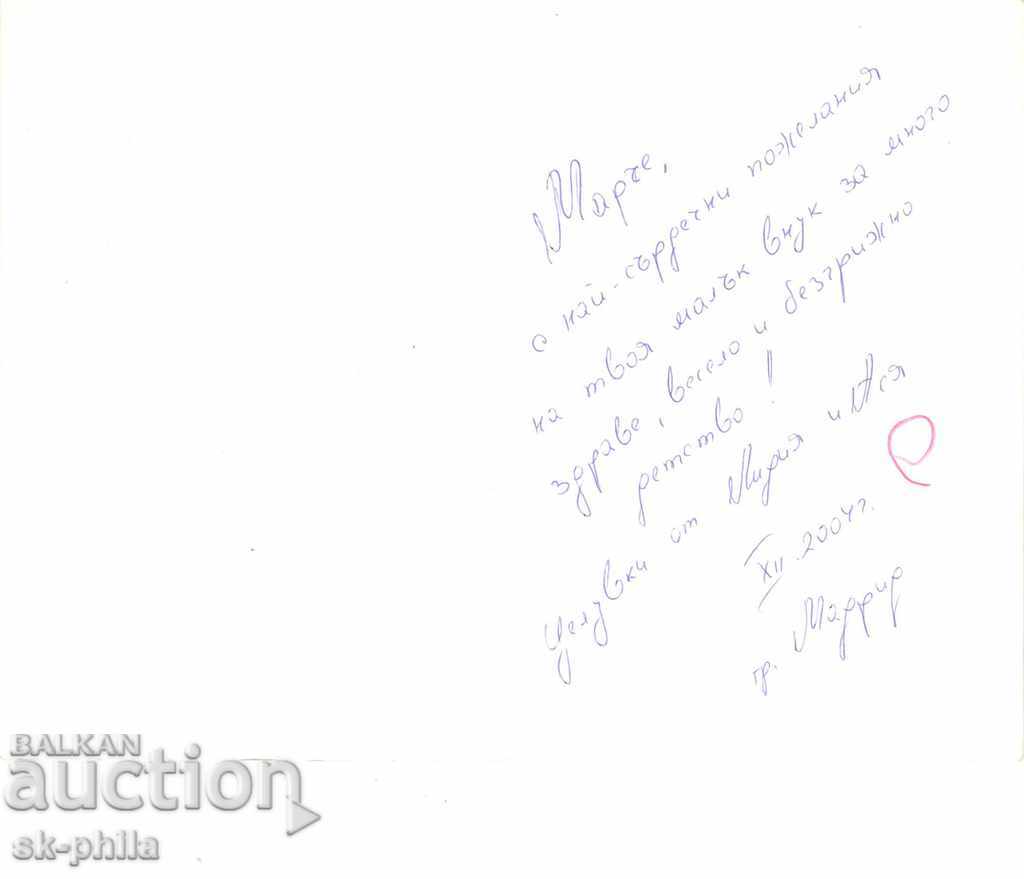 Марче,
с най-сърдечни пожелания
на твоя малък внук за много
здраве, весело и безгрижно
детство!
Целувки от Мария и Ася
XII.2004г.
гр. Мадрид
BALKAN
auction
sk-phila